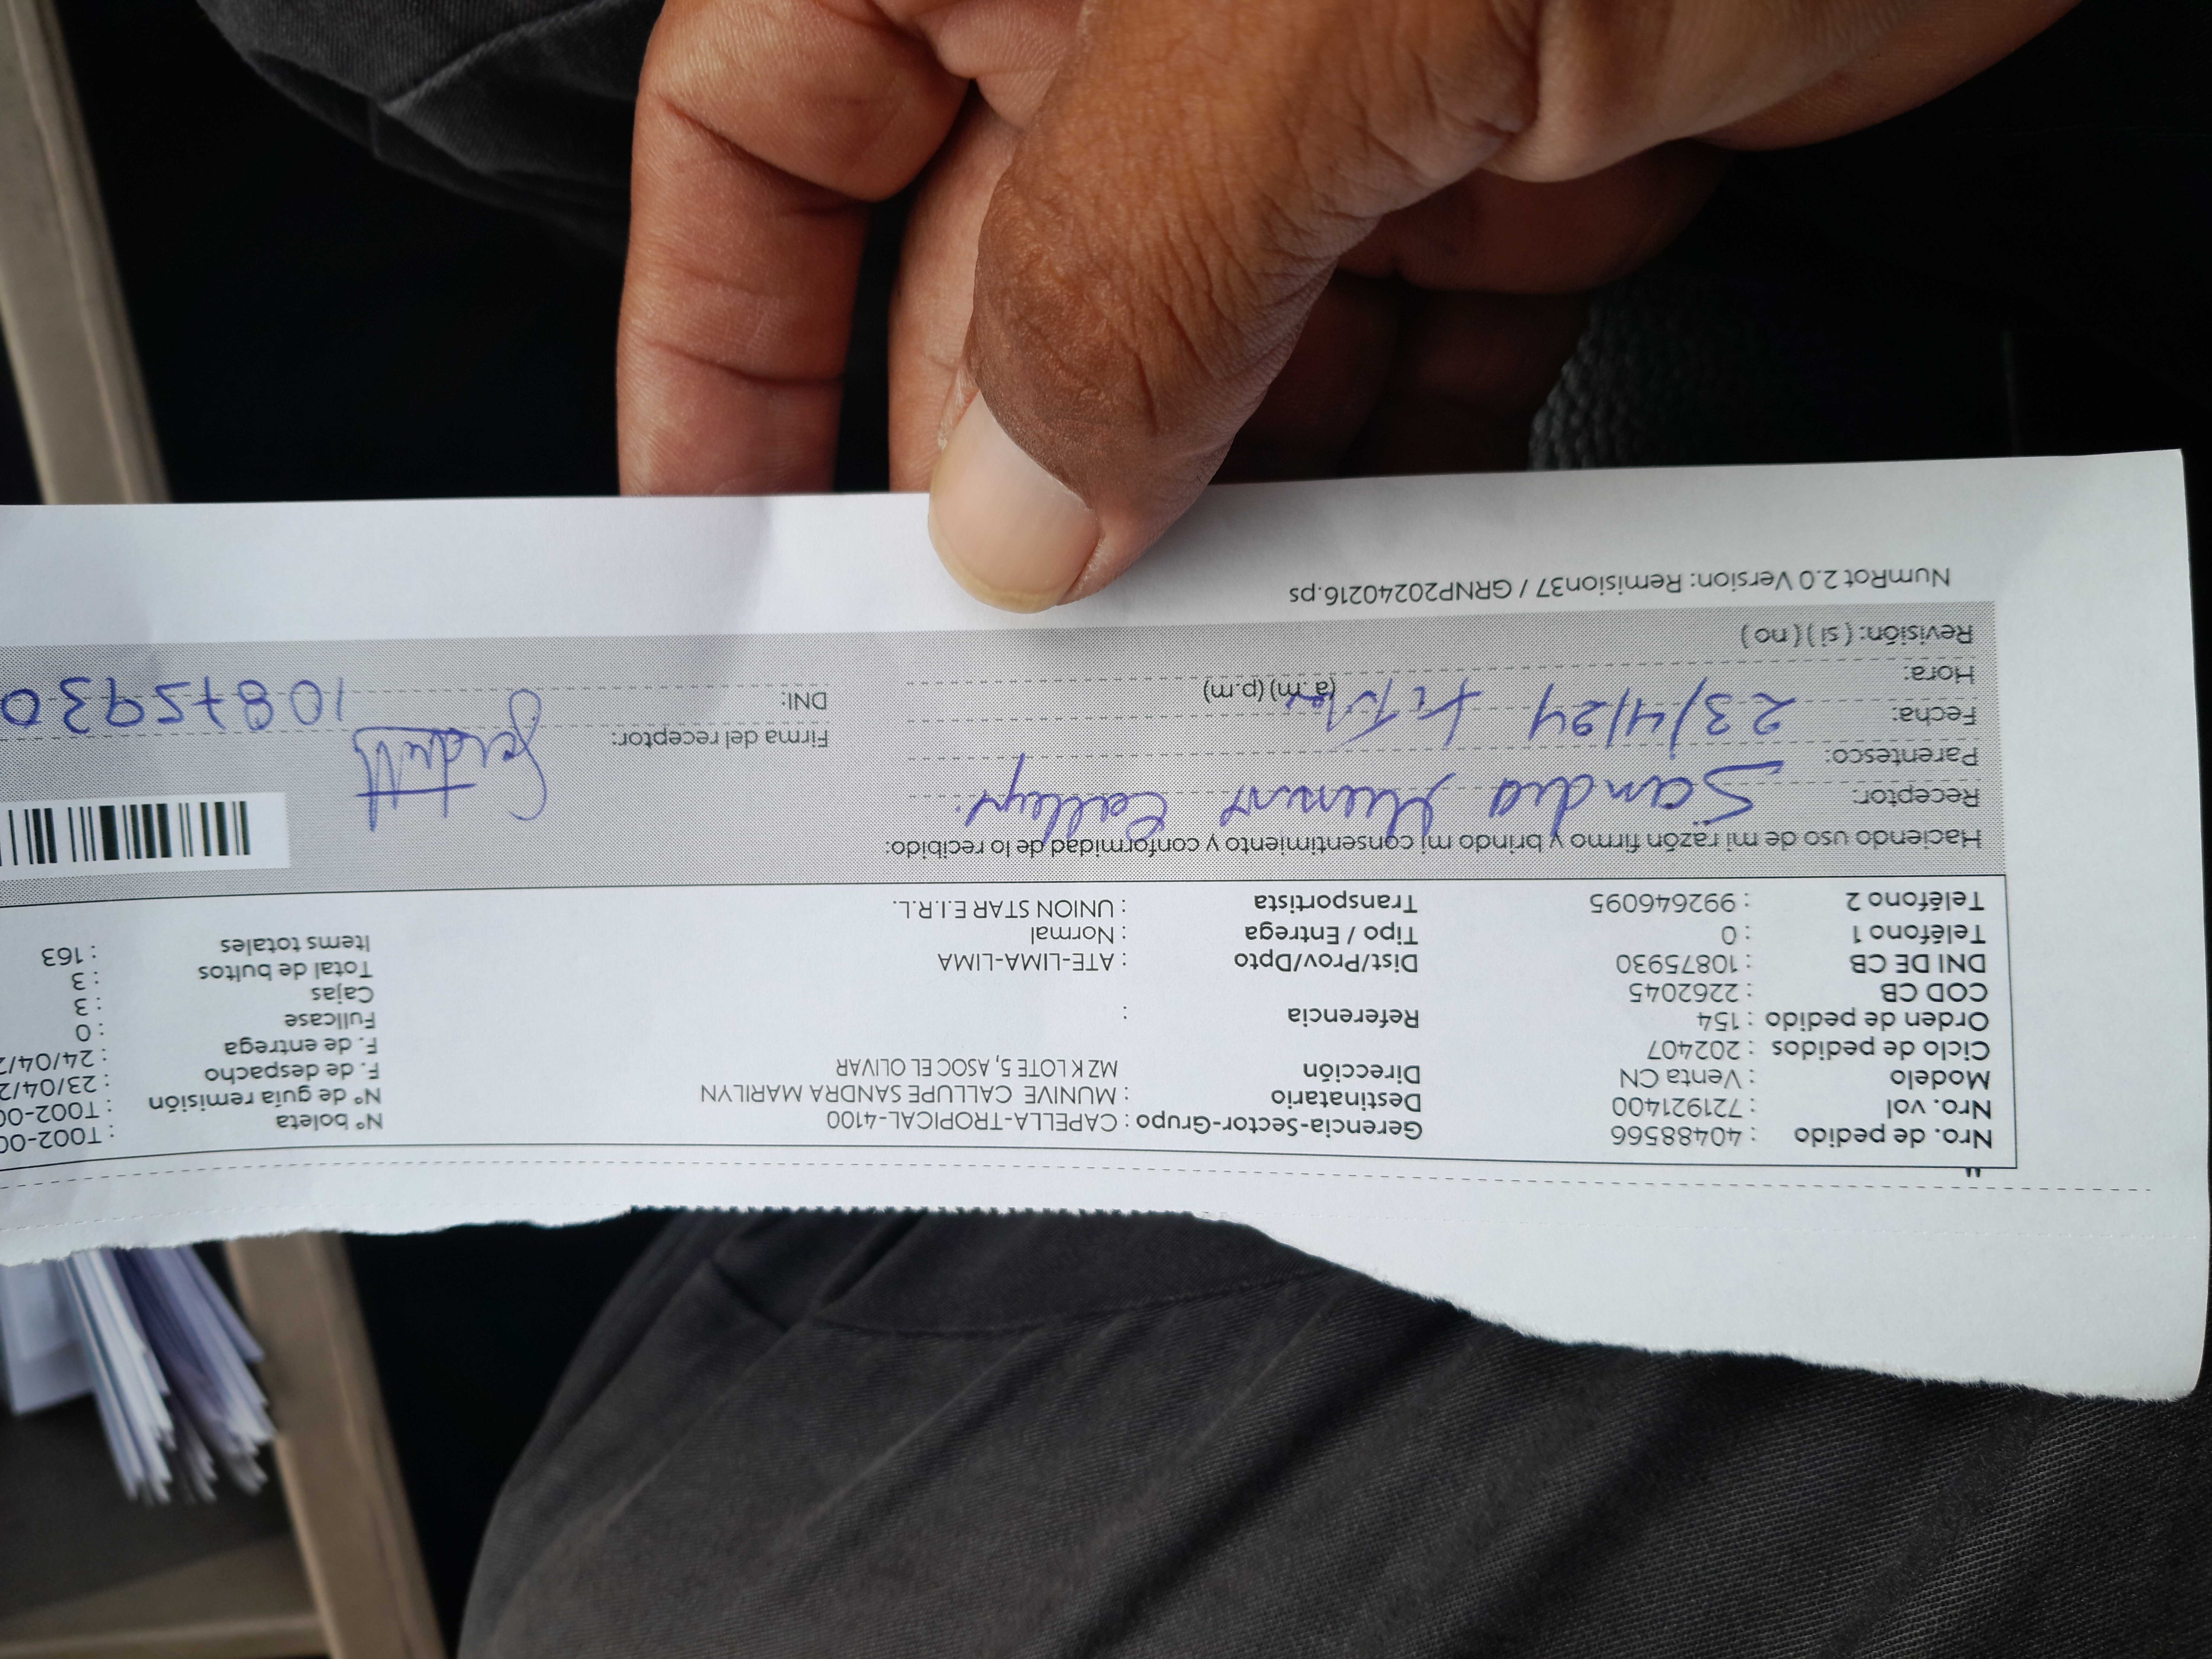 Nro. de pedido : 40488566 Gerencia-Sector-Grupo : CAPELLA-TROPICAL-4100 Nº boleta : T002-00
Nro. vol : 721921400 Destinatario : MUNIVE CALLUPE SANDRA MARILYN Nº de guía remisión : T002-00
Modelo : Venta CN Dirección MZ K LOTE 5, ASOC EL OLIVAR F. de despacho : 23/04/2
Ciclo de pedidos : 202407 F. de entrega : 24/04/2
Orden de pedido : 154 Referencia : Fullcase : 0
COD CB : 2262045 Cajas : 3
DNI DE CB : 10875930 Dist/Prov/Dpto : ATE-LIMA-LIMA Total de bultos : 3
Teléfono 1 : 0 Tipo / Entrega : Normal Items totales : 163
Teléfono 2 : 992646095 Transportista : UNION STAR E.I.R.L.
Haciendo uso de mi razón firmo y brindo mi consentimiento y conformidad de lo recibido:
Receptor: Sandra Munive Callupe
Parentesco: Firma del receptor:
Fecha: 23/4/24 DNI: 10875930
Hora: (a.m) (p.m)
Revisión: ( si ) ( no )
NumRot 2.0 Version: Remision37 / GRNP20240216.ps